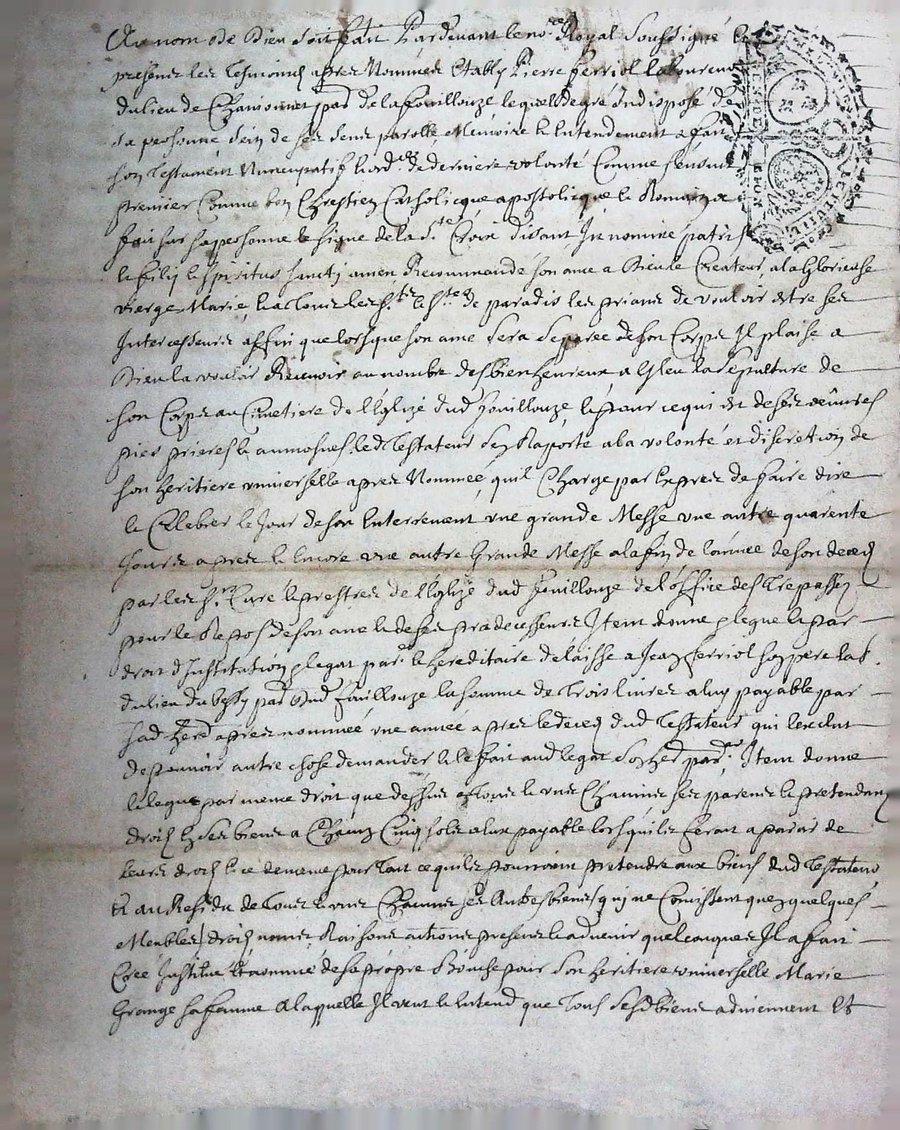 Au nom de Dieu soit fait Pardevant le no.re Royal Soussigné Et
presens les Tesmoins apres Nommes Estably Pierre ferriol laboureur
du lieu de par.sse de la fouillouze lequel de gré Indisposé de
Sa personne Sain de ses sens parolle Memoire Et Entendement a fait
son Testament Nuncupatif Et ord.ce de derniere volonté Comme sensuit
premier Comme bon Chrestien Catholicque apostolicque Et Romain a
fait sur sa personne le signe de la S.te Croix disant In nomine patris
Et filij Et spiritus sancti amen Recommandé son ame a Dieu le Createur, a la glorieuse
vierge Marie, Et a tous les S.ts Et S.tes de paradis les priant de vouloir estre ses
Intercesseurs affin que lorsque son ame sera separee de son Corps Il plaise a
Dieu la vouloir Recevoir au nombre des bienheureux a Esleu la sepulture de
son Corps au Cimetiere de l'Eglize dud fouillouze Et pour ce qui est de ses œuvres
pies prieres Et aumosnes led Testateur sen Raporte a la volonté et discretion de
son heritiere universelle apres Nommeé, quil Charge par Expres de faire dire
Et Celebrer le Jour de son Enterrement une grande Messe une autre quarente
Jours apres Et Encore une autre Grande Messe a la fin de l'année de son deced
par les S.rs Curé Et prestres de l'Eglize dud fouillouze de l'office des Trepasses
pour le Repos de son ame Et de ses predecesseurs Item donne legue Et par
droit d'Institution legat par.r Et hereditaire delaisse a Jean ferriol son pere lab.
du lieu du par.sse dud fouillouze la somme de Trois livres a luy payable par
sad herit apres nommeé, une anneé apres le deced dud Testateur qui l'exclut
de pouvoir autre chose demander Et le fait aud legat son her par.r Item donne
Et legue par meme droit que dessus a tous Et uns Chacuns ses parens Et pretendans
droit En ses biens a Chacun Cinq sols a Eux payable lorsquils feront aparoir de
leurs droits Et ce de meme pour Tout ce quils pourroient pretendre aux biens dud Testateur
Et au Residu de Tous Et uns Chacuns ses Autres biens qui ne Consistent que quelques
Meubles droits noms Raisons actions presens Et advenir quelconques Il a fait
Creé Institué Et nommé de sa propre Bouche pour Son heritiere universelle Marie
Grange sa femme a laquelle Il veut Et Entend que Tous sesd biens adviennent Et